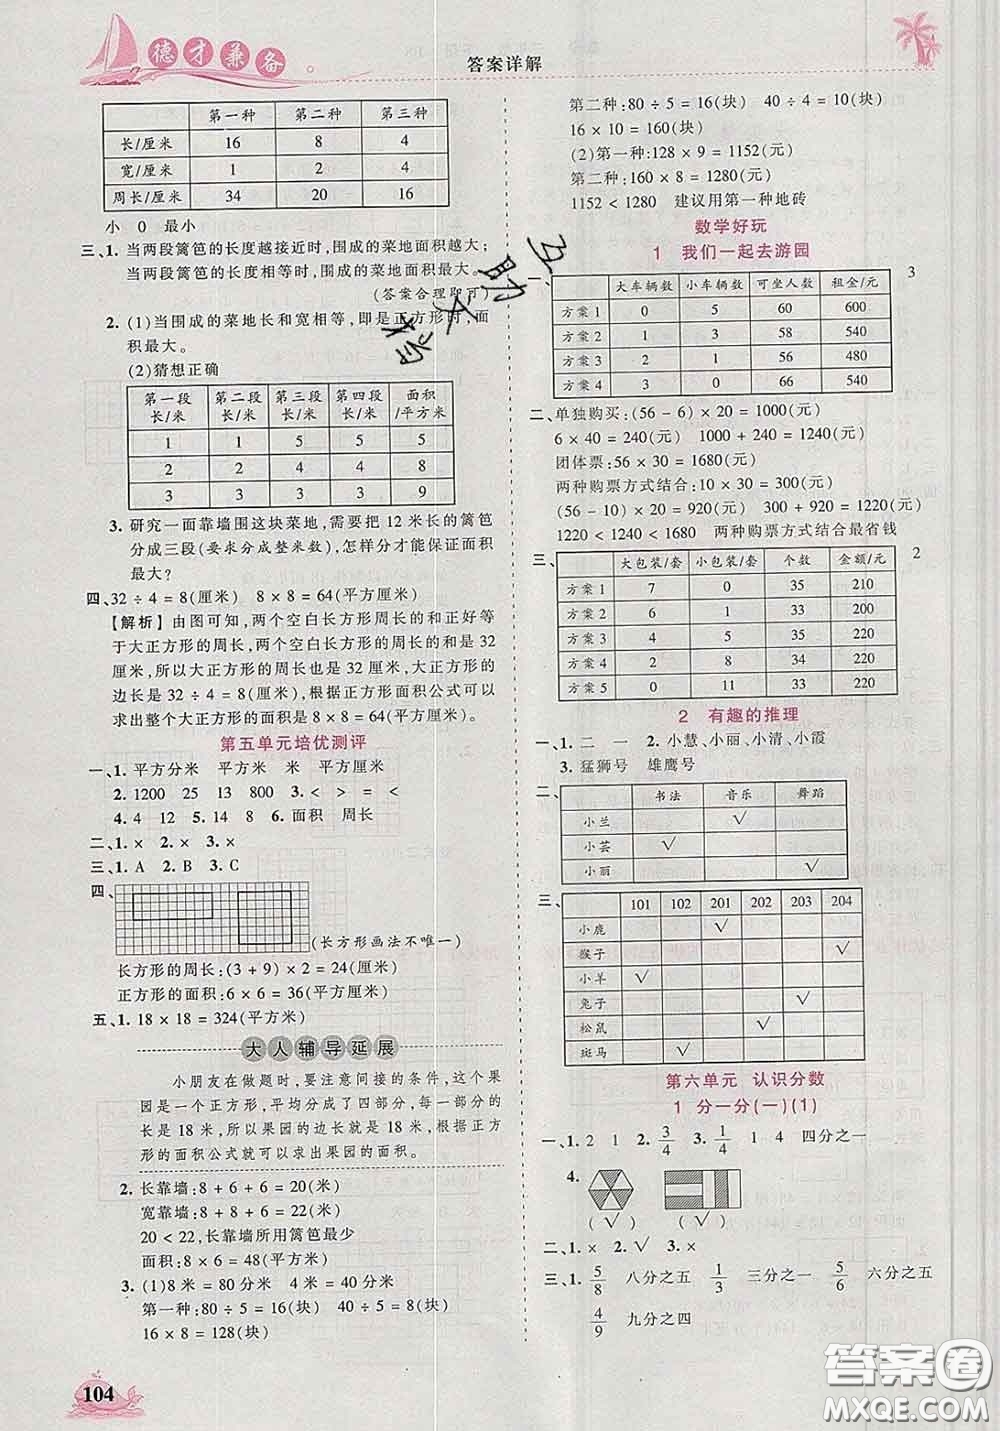 德才兼备。
答案详解
第一种 第二种 第三种
长/厘米 16 8 4
宽/厘米 1 2 4
周长/厘米 34 20 16
小 0 最小
三、1. 当两段篱笆的长度越接近时,围成的菜地面积越大;
当两段篱笆的长度相等时,围成的菜地面积最大。
(答案合理即可)
2. (1)当围成的菜地长和宽相等,即是正方形时,面
积最大。
(2)猜想正确
第一段长/米 第二段长/米 第三段长/米 第四段长/米 面积/平方米
1 1 5 5 5
2 2 4 4 8
3 3 3 3 9
3. 研究一面靠墙围这块菜地,需要把 12 米长的篱笆
分成三段(要求分成整米数),怎样分才能保证面积
最大?
四、32 ÷ 4 = 8(厘米) 8 × 8 = 64(平方厘米)
【解析】 由图可知,两个空白长方形周长的和正好等
于大正方形的周长,两个空白长方形周长的和是 32
厘米,所以大正方形的周长也是 32 厘米,大正方形的
边长是 32 ÷ 4 = 8(厘米),根据正方形面积公式可以
求出整个大正方形的面积是 8 × 8 = 64(平方厘米)。
第五单元培优测评
一、1. 平方分米 平方厘米 米 平方米
2. 1200 25 13 800 3. < > = <
4. 4 12 5. 14 8 6. 面积 周长
二、1. × 2. × 3. ×
三、1. A 2. B 3. C
四、
(长方形画法不唯一)
长方形的周长:(3 + 9) × 2 = 24(厘米)
正方形的面积:6 × 6 = 36(平方厘米)
五、1. 18 × 18 = 324(平方米)
大人辅导延展
小朋友在做题时,要注意间接的条件,这个果
园是一个正方形,平均分成了四部分,每一部分的
长是 18 米,所以果园的边长就是 18 米,根据正方
形的面积公式就可以求出果园的面积。
2. 长靠墙:8 + 6 + 6 = 20(米)
宽靠墙:8 + 8 + 6 = 22(米)
20 < 22,长靠墙所用篱笆最少
面积:8 × 6 = 48(平方米)
3. (1)8 米 = 80 分米 4 米 = 40 分米
第一种:80 ÷ 5 = 16(块) 40 ÷ 5 = 8(块)
16 × 8 = 128(块)
104
第二种:80 ÷ 5 = 16(块) 40 ÷ 4 = 10(块)
16 × 10 = 160(块)
(2)第一种:128 × 9 = 1152(元)
第二种:160 × 8 = 1280(元)
1152 < 1280 建议用第一种地砖
数学好玩
1 我们一起去游园
一、 3
大车辆数 小车辆数 可坐人数 租金/元
方案 1 0 5 60 600
方案 2 1 3 58 540
方案 3 2 1 56 480
方案 4 3 0 66 540
二、单独购买:(56 - 6) × 20 = 1000(元)
6 × 40 = 240(元) 1000 + 240 = 1240(元)
团体票:56 × 30 = 1680(元)
两种购票方式结合:10 × 30 = 300(元)
(56 - 10) × 20 = 920(元) 300 + 920 = 1220(元)
1220 < 1240 < 1680 两种购票方式结合最省钱
三、 2
大包装/套 小包装/套 个数 金额/元
方案 1 7 0 35 210
方案 2 6 1 33 220
方案 3 4 5 35 220
方案 4 2 8 34 220
方案 5 0 11 33 220
2 有趣的推理
一、1. 二 一 2. 小慧、小丽、小清、小霞
3. 猛狮号 雄鹰号
二、
书法 音乐 舞蹈
小兰 √
小芸 √
小丽 √
三、
101 102 201 202 203 204
小鹿 √
猴子 √
小羊 √
兔子 √
松鼠 √
斑马 √
第六单元 认识分数
1 分一分(一)(1)
一、1. 2 1 2. 3/4 3. 1/4 1 4 四分之一
4.
( √ ) ( √ )
二、1. × 2. √ 3. ×
三、1. 5/8 八分之五 1/3 三分之一 5/6 六分之五
4/9 九分之四
互助文档
答案圈
MXQE.COM